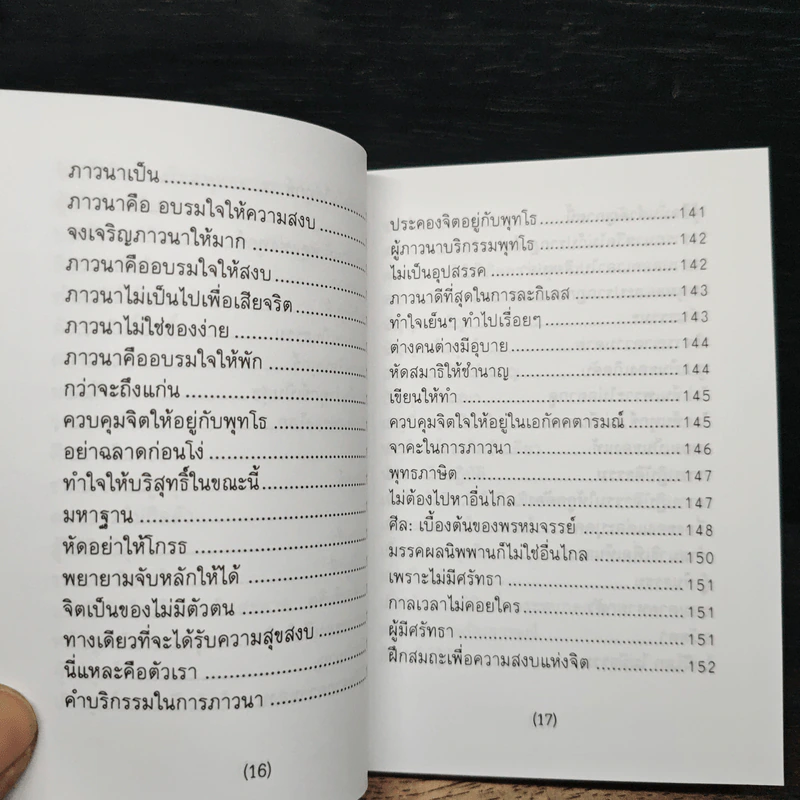 ภาวนาเป็น
ภาวนาคือ อบรมใจให้ความสงบ
จงเจริญภาวนาให้มาก
ภาวนาคืออบรมใจให้สงบ
ภาวนาไม่เป็นไปเพื่อเสียจริต
ภาวนาไม่ใช่ของง่าย
ภาวนาคืออบรมใจให้พัก
กว่าจะถึงแก่น
ควบคุมจิตให้อยู่กับพุทโธ
อย่าฉลาดก่อนโง่
ทำใจให้บริสุทธิ์ในขณะนี้
มหาฐาน
หัดอย่าให้โกรธ
พยายามจับหลักให้ได้
จิตเป็นของไม่มีตัวตน
ทางเดียวที่จะได้รับความสุขสงบ
นี่แหละคือตัวเรา
คำบริกรรมในการภาวนา
(16)
ประคองจิตอยู่กับพุทโธ 141
ผู้ภาวนาบริกรรมพุทโธ 142
ไม่เป็นอุปสรรค 142
ภาวนาดีที่สุดในการละกิเลส 143
ทำใจเย็นๆ ทำไปเรื่อยๆ 143
ต่างคนต่างมีอุบาย 144
หัดสมาธิให้ชำนาญ 144
เขียนให้ทำ 145
ควบคุมจิตใจให้อยู่ในเอกัคคตารมณ์ 145
จาคะในการภาวนา 146
พุทธภาษิต 147
ไม่ต้องไปหาอื่นไกล 147
ศีล: เบื้องต้นของพรหมจรรย์ 148
มรรคผลนิพพานก็ไม่ใช่อื่นไกล 150
เพราะไม่มีศรัทธา 151
กาลเวลาไม่คอยใคร 151
ผู้มีศรัทธา 151
ฝึกสมถะเพื่อความสงบแห่งจิต 152
(17)